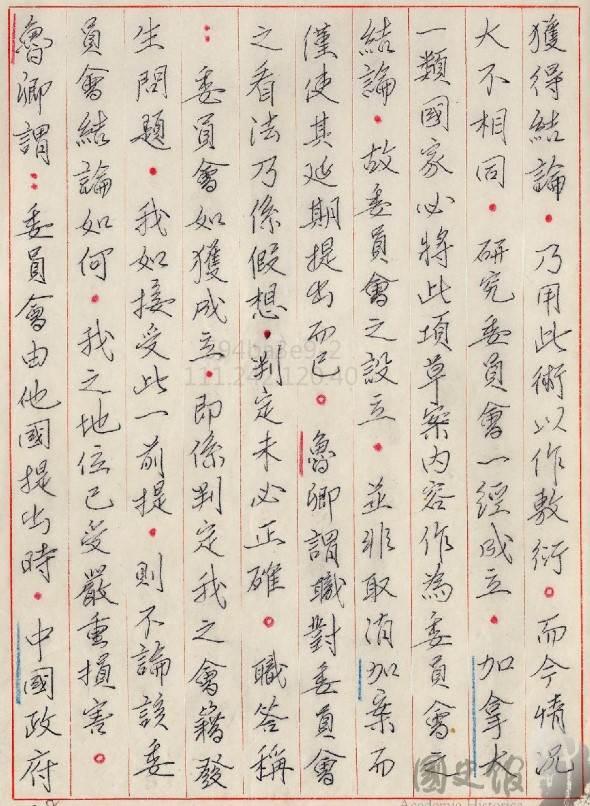 獲得結論。乃用此術以作敷衍。而今情況
大不相同。研究委員會一經成立。加拿大
一類國家必將此項草案內容作為委員會之
結論。故委員會之設立。並非取消加案而
僅使其延期提出而已。魯卿謂職對委員會
之看法乃係假想。判定未必正確。職答稱
：委員會如獲成立。即係判定我之會籍發
生問題。我如接受此一前提。則不論該委
員會結論如何。我之地位已受嚴重損害。
魯卿謂：委員會由他國提出時。中國政府
111.242.120.40
國史館
Academia Historica